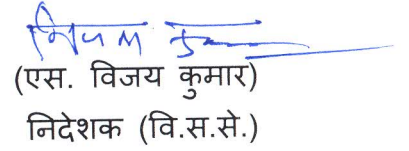 (एस. विजय कुमार)
निदेशक (वि.स.से.)